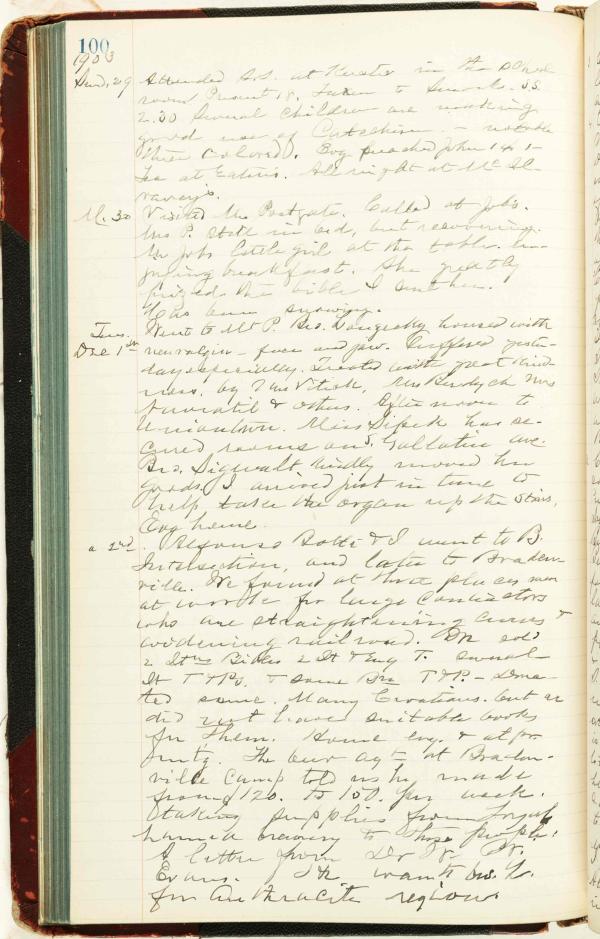 100
1903
Sun. 29 Attended S.S. at Keister in the School
room Present 18. Taken to Smock. S.S.
2.30 Several children are making
good use of Catechism - notable
three colored. Evg preached John 14:1-
Tea at Eatons. All night at Mc
M. 30 Visited Mr Postgate. Called at Jobs.
Mrs P. still in bed, but recovering.
Mr Jobs little girl at the table. En-
joying breakfast. She greatly
prized the bible I sent her.
Has been snowing.
Tues. Went to Mt P. Bro. housed with
Dec 1st neuralgia - face and jaw. Suffered yester-
day especially. Treated with great kind-
ness, by Mrs Vitek, Mrs Mrs
& others. Afternoon to
Uniontown. Miss Sipek has se-
cured rooms on S. Gallatin ave.
Bro. Sigwalt kindly moved her
goods. I arrived just in time to
help take the organ up the stairs.
Evg home.
2nd. Alfonso & I went to B.
Intersection, and later to Braden-
ville. We found at three places men
at work for large contractors
who are straightening curves &
widening railroad. We sold
2 Bibles 2 It & Eng T. several
It T & Ps. & some T & P. - Dona-
ted some. Many Croatians. but we
did not have suitable books
for them. Home evg. & at
The beer agt at Braden-
ville Camp told us he made
from $120. to 150. per week.
taking supplies from
brewery to these people.
A letter from Dr W.
Evans. He wants
for Anthracite region.